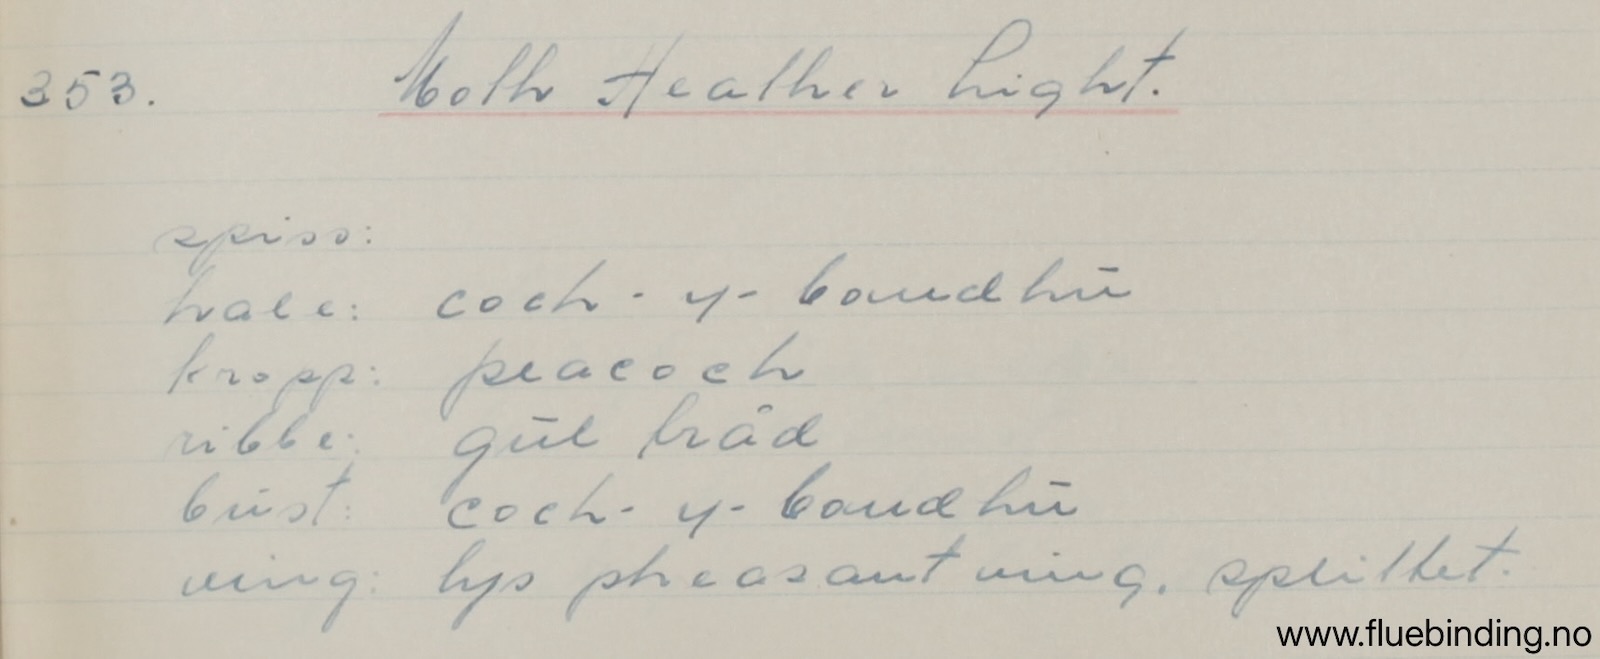 353. Moth Heather Light.
spiss:
hale: coch-y-bondhū
kropp: peacock
ribbe: gūl tråd
būst: coch-y-bondhū
ving: lys pheasant ving. splittet.
www.fluebinding.no